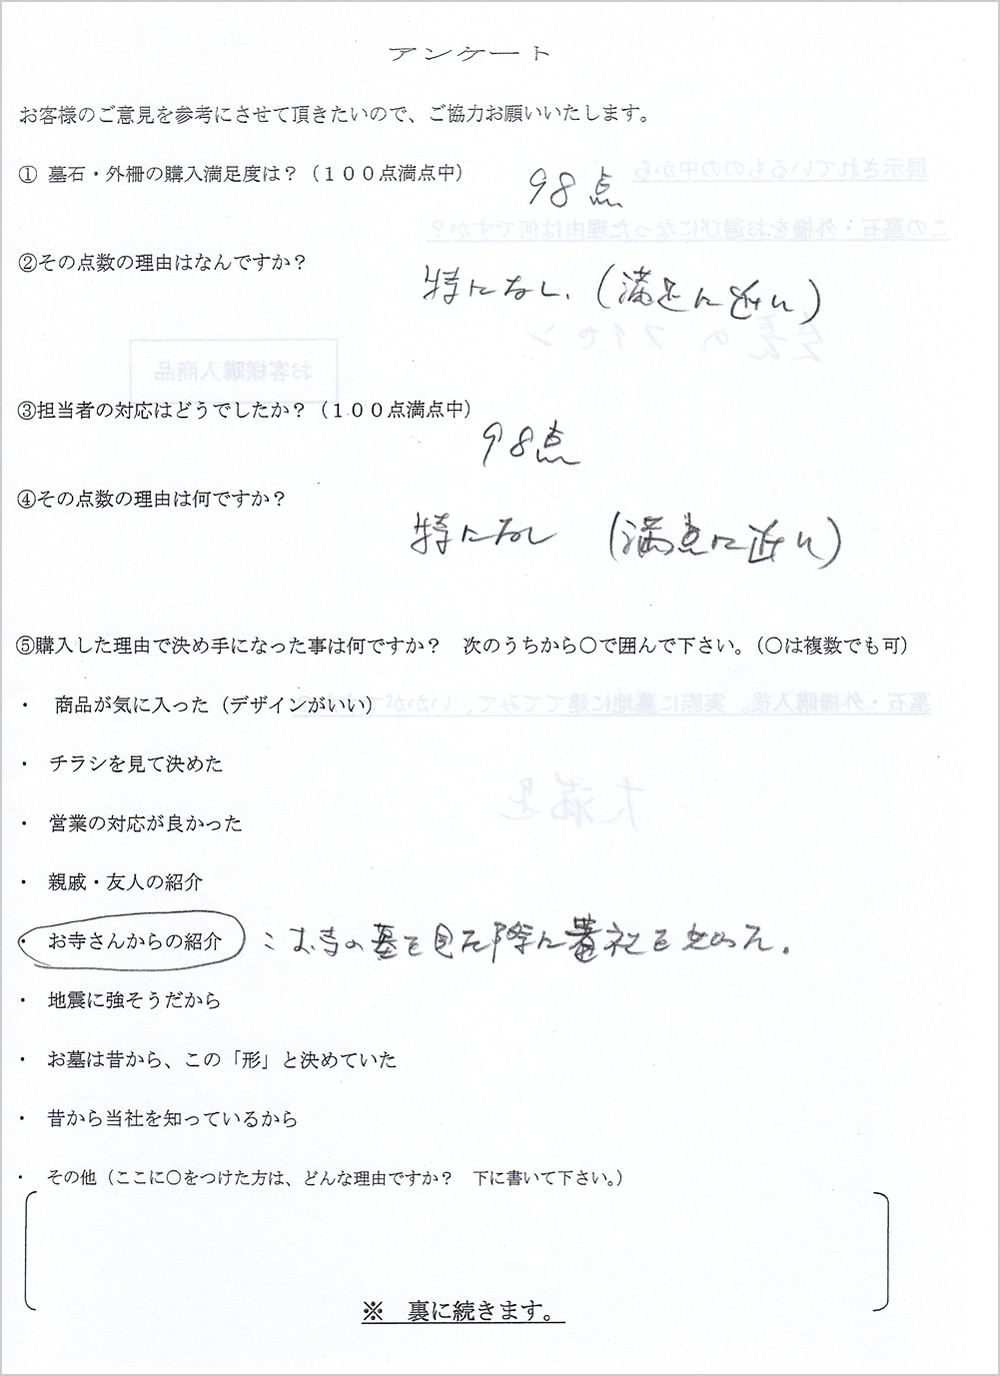 アンケート
お客様のご意見を参考にさせて頂きたいので、ご協力お願いいたします。
① 墓石・外柵の購入満足度は？（１００点満点中）
98点
②その点数の理由はなんですか？
特になし、（満足に近い）
③担当者の対応はどうでしたか？（１００点満点中）
98点
④その点数の理由は何ですか？
特になし （満点に近い）
⑤購入した理由で決め手になった事は何ですか？　次のうちから○で囲んで下さい。（○は複数でも可）
・　商品が気に入った（デザインがいい）
・　チラシを見て決めた
・　営業の対応が良かった
・　親戚・友人の紹介
・　お寺さんからの紹介 : お寺の墓を見た際に貴社を
・　地震に強そうだから
・　お墓は昔から、この「形」と決めていた
・　昔から当社を知っているから
・　その他（ここに○をつけた方は、どんな理由ですか？　下に書いて下さい。）
※　裏に続きます。